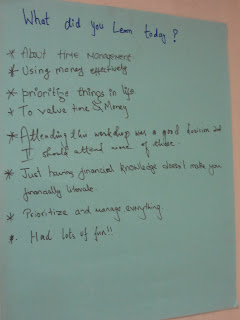 What did you Learn today?
* About time management
* Using money effectively
* prioritize things in life
* To value time & Money
* Attending this workshop was a good decision and
I should attend more of these.
* Just having financial knowledge doesn't make you
financially literate.
* Prioritize and manage everything.
* Had lots of fun!!